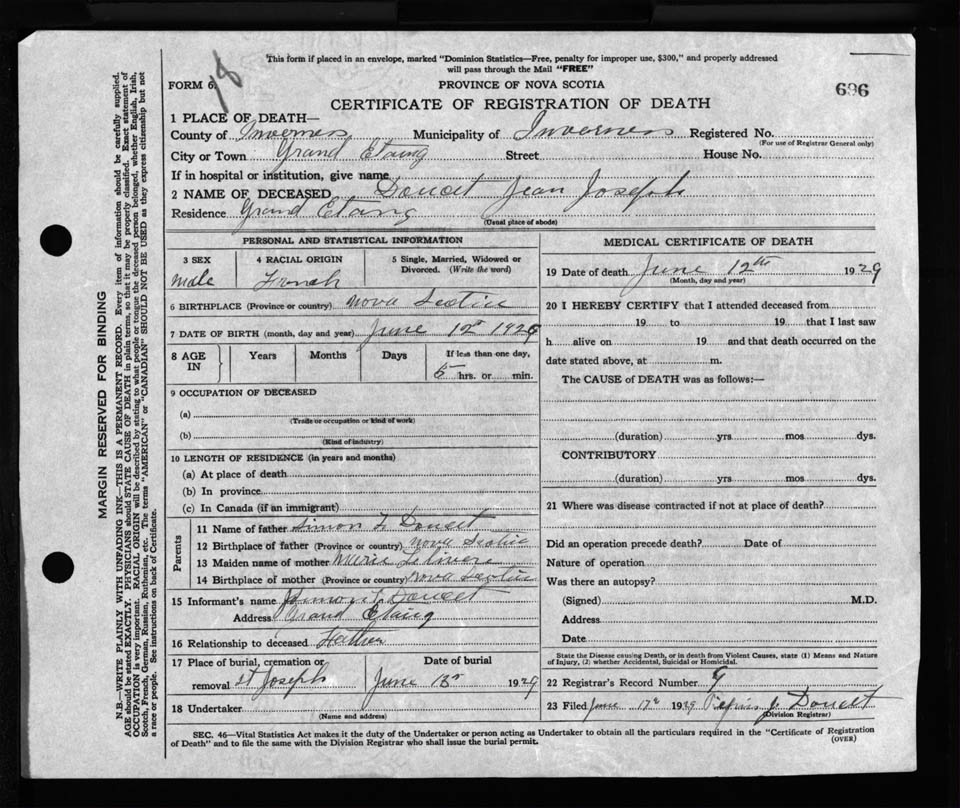 This form if placed in an envelope, marked "Dominion Statistics—Free, penalty for improper use, $300," and properly addressed
will pass through the Mail "FREE"
18
FORM 6.
PROVINCE OF NOVA SCOTIA
696
CERTIFICATE OF REGISTRATION OF DEATH
1 PLACE OF DEATH—
County of Inverness Municipality of Inverness Registered No.
(For use of Registrar General only)
City or Town Grand Etang Street House No.
If in hospital or institution, give name
2 NAME OF DECEASED Doucet Jean Joseph
Residence Grand Etang
(Usual place of abode)
PERSONAL AND STATISTICAL INFORMATION
3 SEX 4 RACIAL ORIGIN 5 Single, Married, Widowed or
Divorced. (Write the word)
Male French
6 BIRTHPLACE (Province or country) Nova Scotia
7 DATE OF BIRTH (month, day and year) June 12 1929
8 AGE IN Years Months Days If less than one day,
5 hrs. or min.
9 OCCUPATION OF DECEASED
(a)
(Trade or occupation or kind of work)
(b)
(Kind of industry)
10 LENGTH OF RESIDENCE (in years and months)
(a) At place of death
(b) In province
(c) In Canada (if an immigrant)
Parents
11 Name of father Simon F Doucet
12 Birthplace of father (Province or country) Nova Scotia
13 Maiden name of mother Marie
14 Birthplace of mother (Province or country) Nova Scotia
15 Informant's name Simon F Doucet
Address Grand Etang
16 Relationship to deceased Father
17 Place of burial, cremation or Date of burial
removal St Joseph June 13 1929
18 Undertaker
(Name and address)
MEDICAL CERTIFICATE OF DEATH
19 Date of death June 12th 1929
(Month, day and year)
20 I HEREBY CERTIFY that I attended deceased from
19 to 19 that I last saw
h alive on 19 and that death occurred on the
date stated above, at m.
The CAUSE of DEATH was as follows:—
(duration) yrs mos dys.
CONTRIBUTORY
(duration) yrs mos dys.
21 Where was disease contracted if not at place of death?
Did an operation precede death? Date of
Nature of operation
Was there an autopsy?
(Signed) M.D.
Address
Date
State the Disease causing Death, or in death from Violent Causes, state (1) Means and Nature
of Injury, (2) whether Accidental, Suicidal or Homicidal.
22 Registrar's Record Number 9
23 Filed June 17 1929 J. Doucet
(Division Registrar)
SEC. 46—Vital Statistics Act makes it the duty of the Undertaker or person acting as Undertaker to obtain all the particulars required in the "Certificate of Registration
of Death" and to file the same with the Division Registrar who shall issue the burial permit.
(OVER)
MARGIN RESERVED FOR BINDING
N.B.—WRITE PLAINLY WITH UNFADING INK—THIS IS A PERMANENT RECORD. Every item of information should be carefully supplied.
AGE should be stated EXACTLY. PHYSICIANS should STATE CAUSE OF DEATH in plain terms, so that it may be properly classified. Exact statement of
OCCUPATION is very important. RACIAL ORIGIN will be described by stating to what people or tongue the deceased person belonged, whether English, Irish,
Scotch, French, German, Russian, Ruthenian, etc. The terms "AMERICAN" or "CANADIAN" SHOULD NOT BE USED as they express citizenship but not
a race or people. See instructions on back of Certificate.